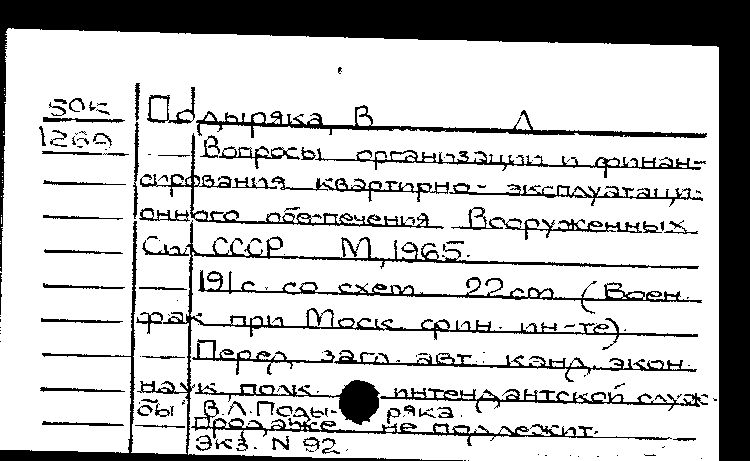 50к Подыряка, В Л
1269 Вопросы организации и финан-
сирования квартирно-эксплуатаци-
онного обеспечения Вооруженных
Сил СССР М, 1965.
191с. со схем. 22см (Воен.
фак при Моск. фин. ин-те)
Перед загл. авт.: канд. экон.
наук, полк. интендантской служ-
бы В.Л. Поды- ряка.
Продаже не подлежит.
Экз. N 92.